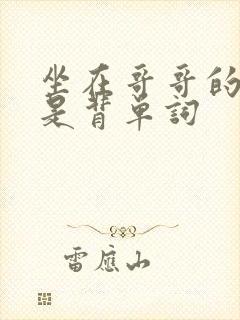 坐在哥哥的
是背单詞
雷應山